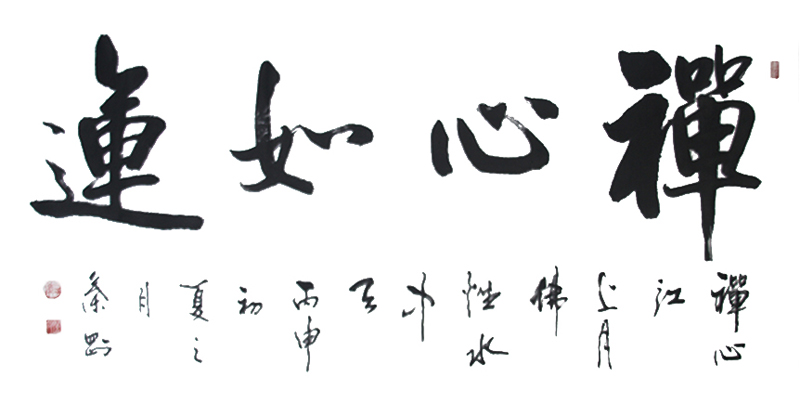 禪心如蓮
禪心
江
上月
佛
性水
中
天
丙申
初
夏之
月